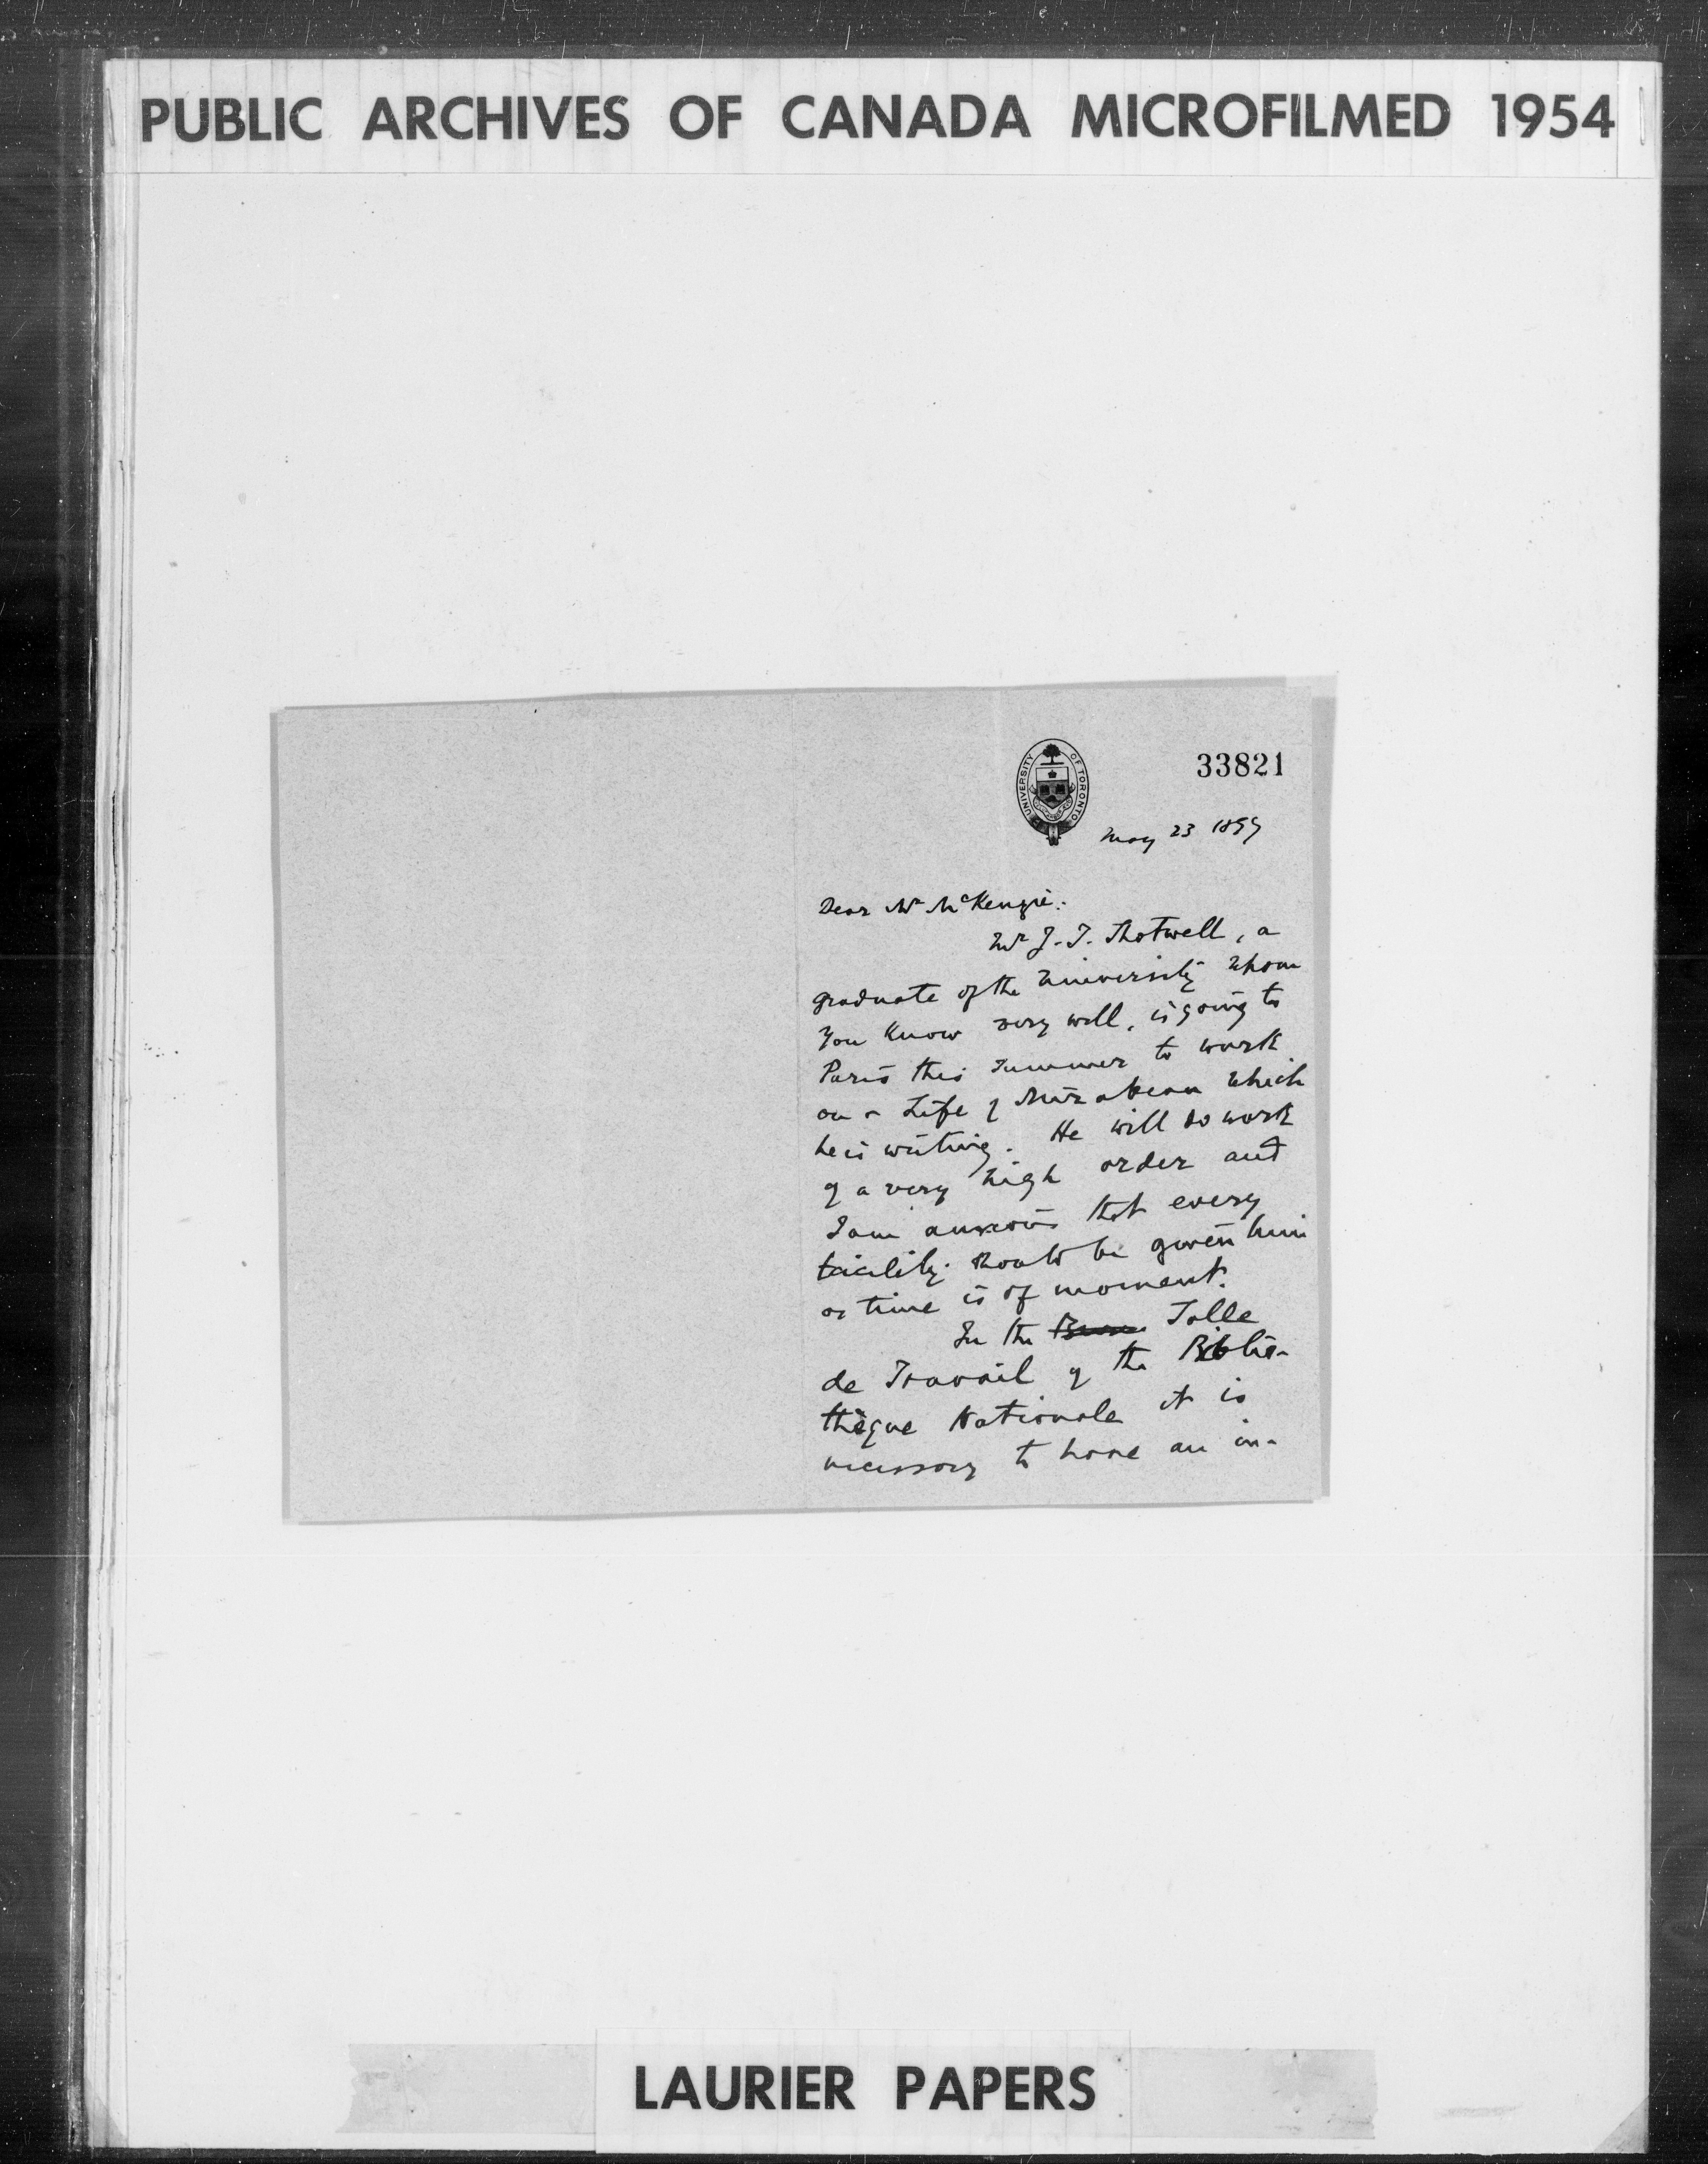 PUBLIC ARCHIVES OF CANADA MICROFILMED 1954
UNIVERSITY OF TORONTO
33821
May 23 1899
Dear Mr McKenzie:
Mr J. T. Shotwell, a
graduate of the University whom
you know very well, is going to
Paris this summer to work
on a Life of Mirabeau which
he is writing. He will do work
of a very high order and
I am anxious that every
facility should be given him
as time is of moment.
In the Salle
de Travail of the Biblio-
thèque Nationale it is
necessary to have an in-
LAURIER PAPERS